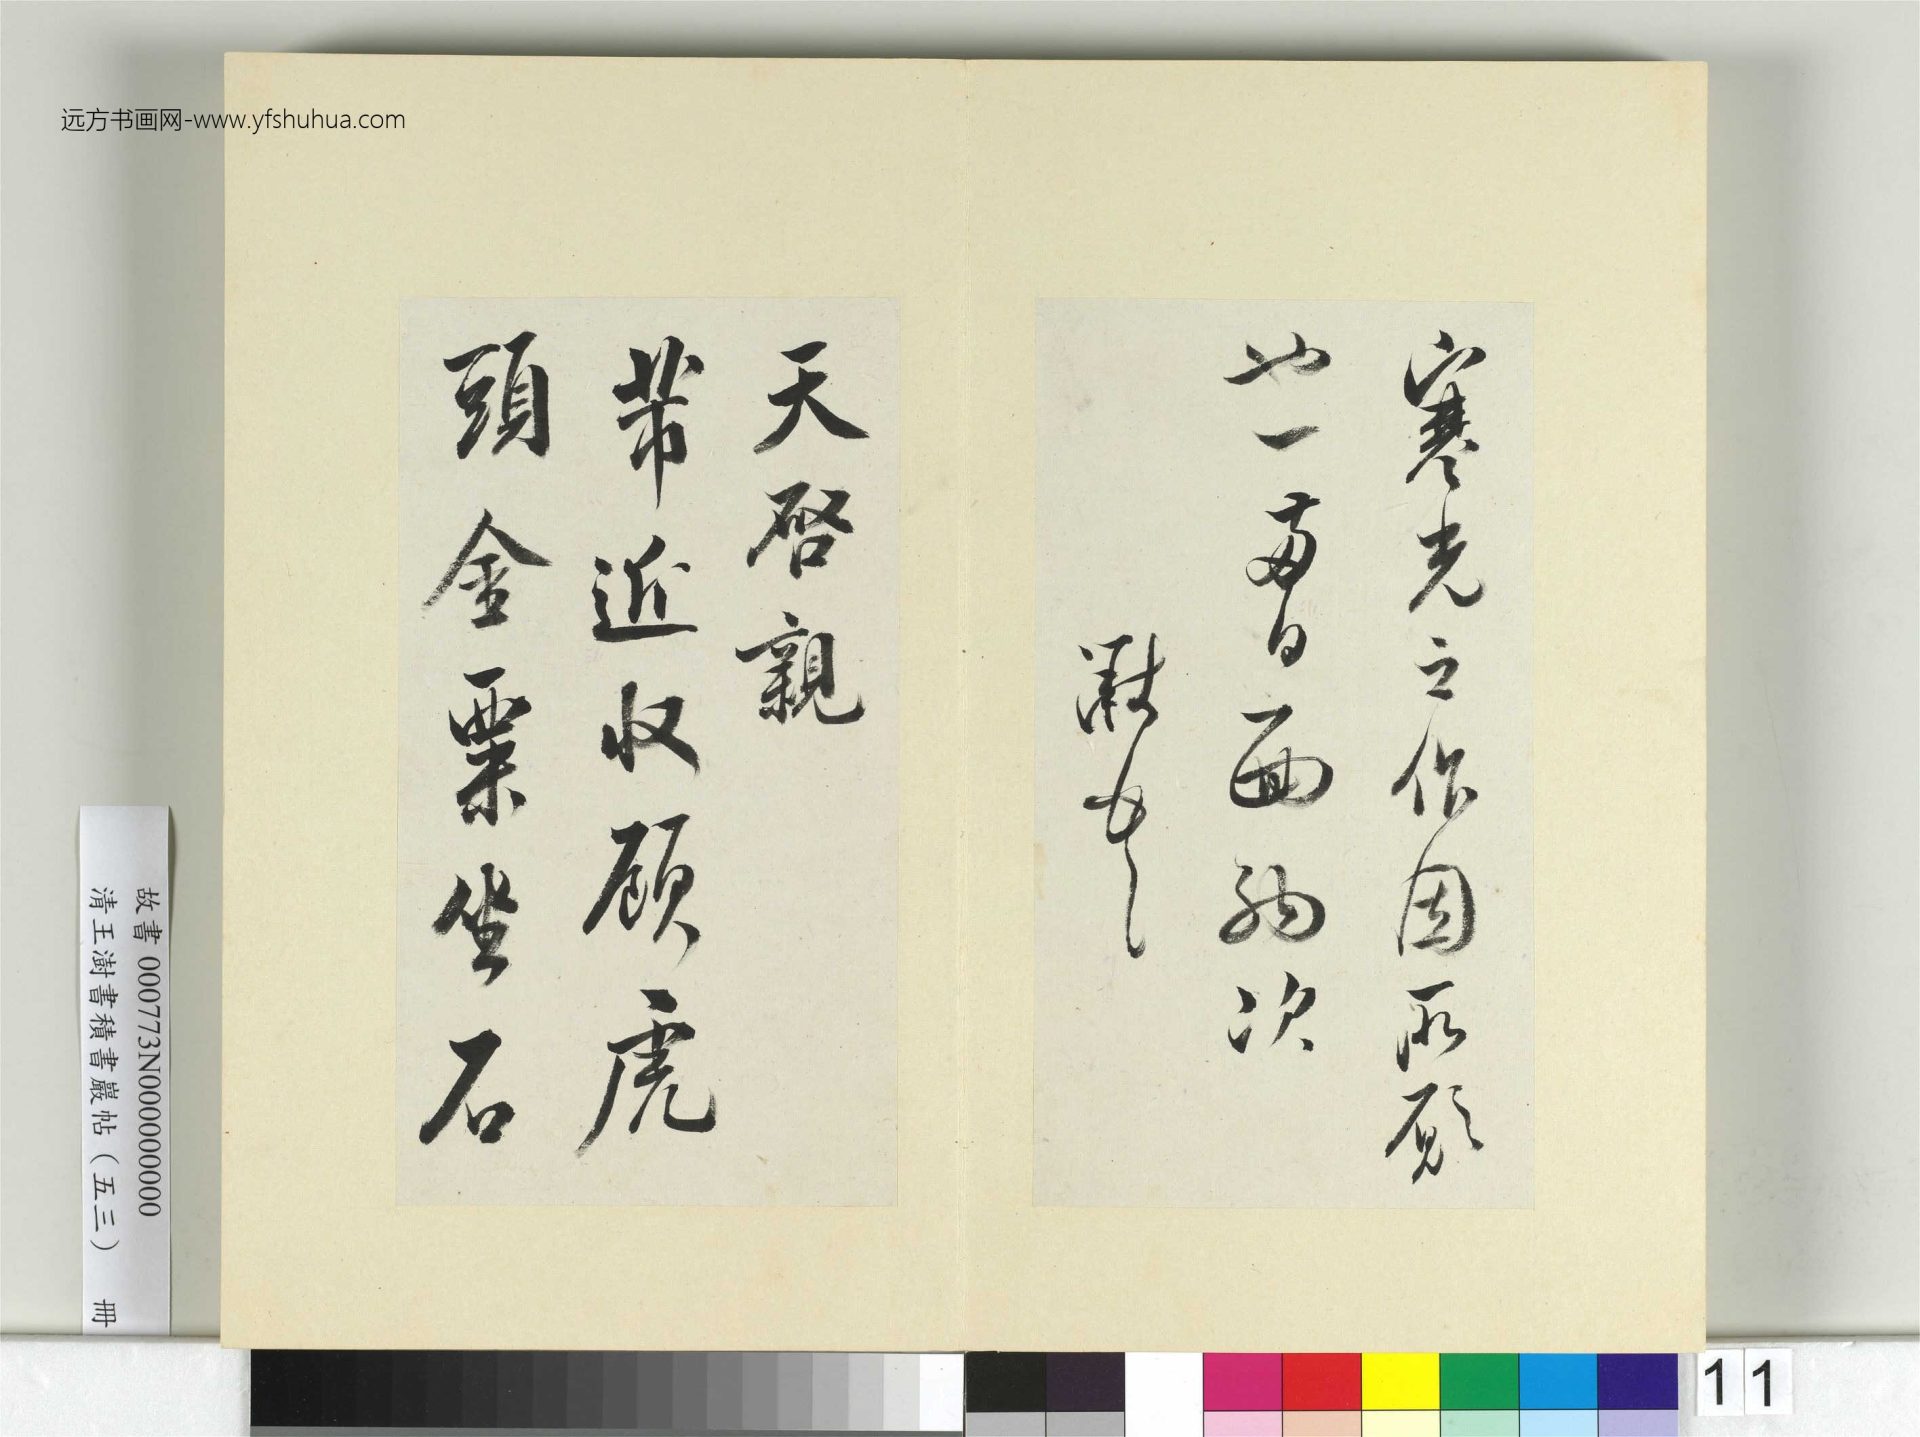 远方书画网-www.yfshuhua.com
寒光之作固所願
也一兩日面納次
黻頓首
天啓親
芾近收顧虎
頭金粟坐石
故書 000773N000000000
清王澍書積書巖帖(五三) 冊
11